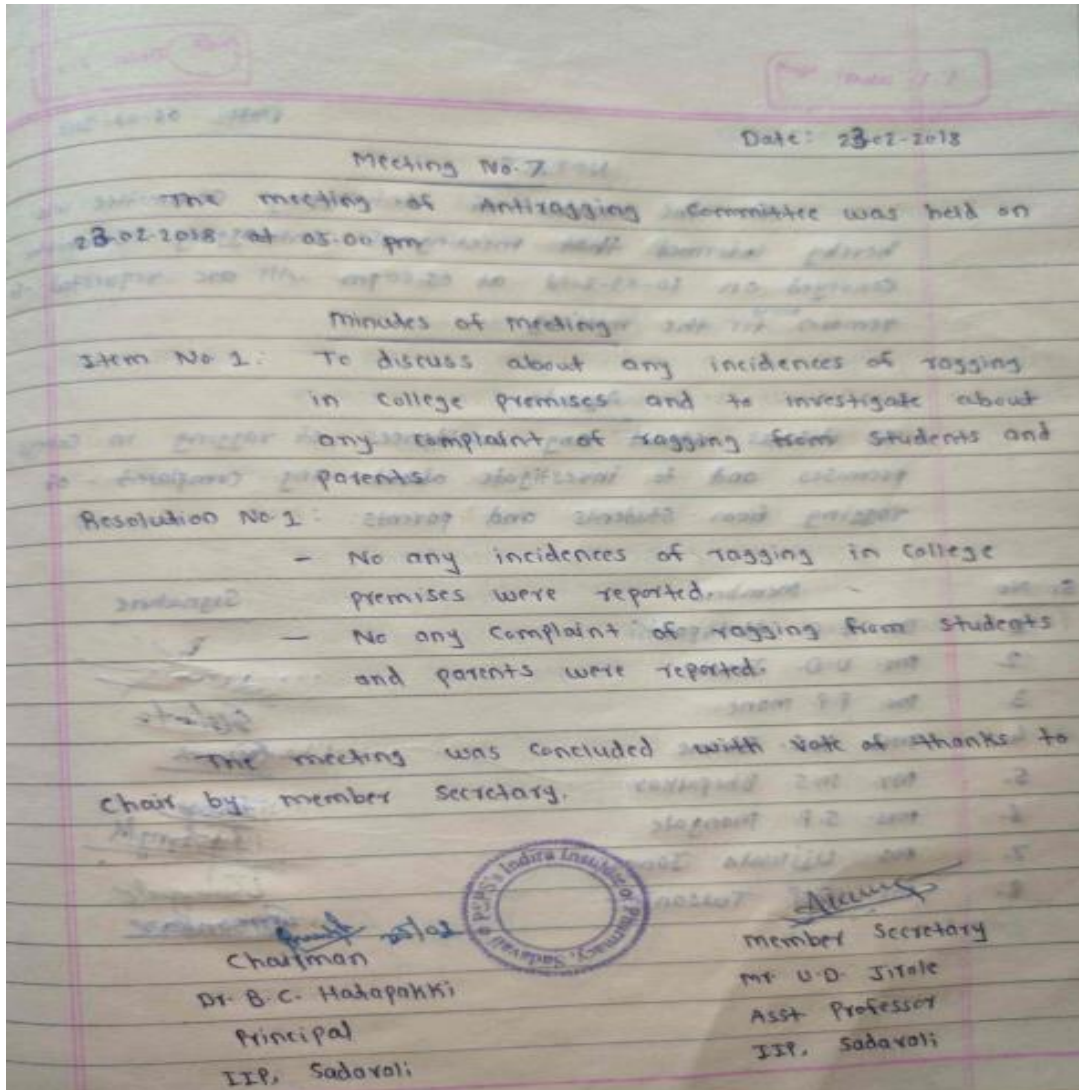 Date: 23-02-2018
Meeting No. 7
The meeting of Antiragging Committee was held on
23-02-2018 at 05.00 pm
Minutes of meeting
Item No 1: To discuss about any incidences of ragging
in College premises and to investigate about
any complaint of ragging from students and
parents
Resolution No. 1:
- No any incidences of ragging in College
premises were reported.
- No any Complaint of ragging from students
and parents were reported.
The meeting was concluded with vote of thanks to
Chair by member secretary.
PCPS's Indira Institute of Pharmacy, Sadavali
Chairman
Dr. B. C. Hatapakki
Principal
IIP, Sadavali
member secretary
Mr U.D. Jirole
Asst Professor
IIP, Sadavali